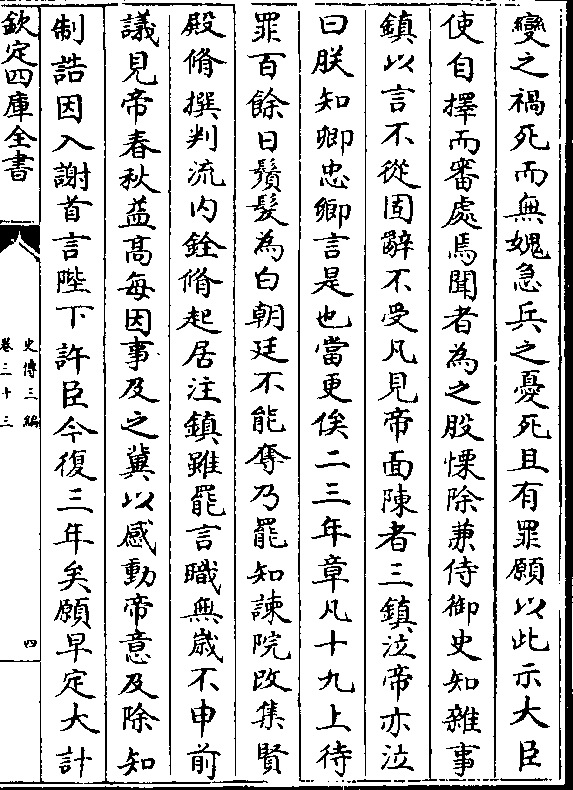 變之禍死而無媿急兵之憂死且有罪願以此示大臣
使自擇而審處焉聞者為之股慄除兼侍御史知雜事
鎮以言不從固辭不受凡見帝面陳者三鎮泣帝亦泣
曰朕知卿忠卿言是也當更俟二三年章凡十九上待
罪百餘日鬚髮為白朝廷不能奪乃罷知諫院改集賢
殿脩撰判流内銓脩起居注鎮雖罷言職無歲不申前
議見帝春秋益髙每因事及之冀以感動帝意及除知
制誥因入謝首言陛下許臣今復三年矣願早定大計
欽定四庫全書
史傳三編
卷三十三
四